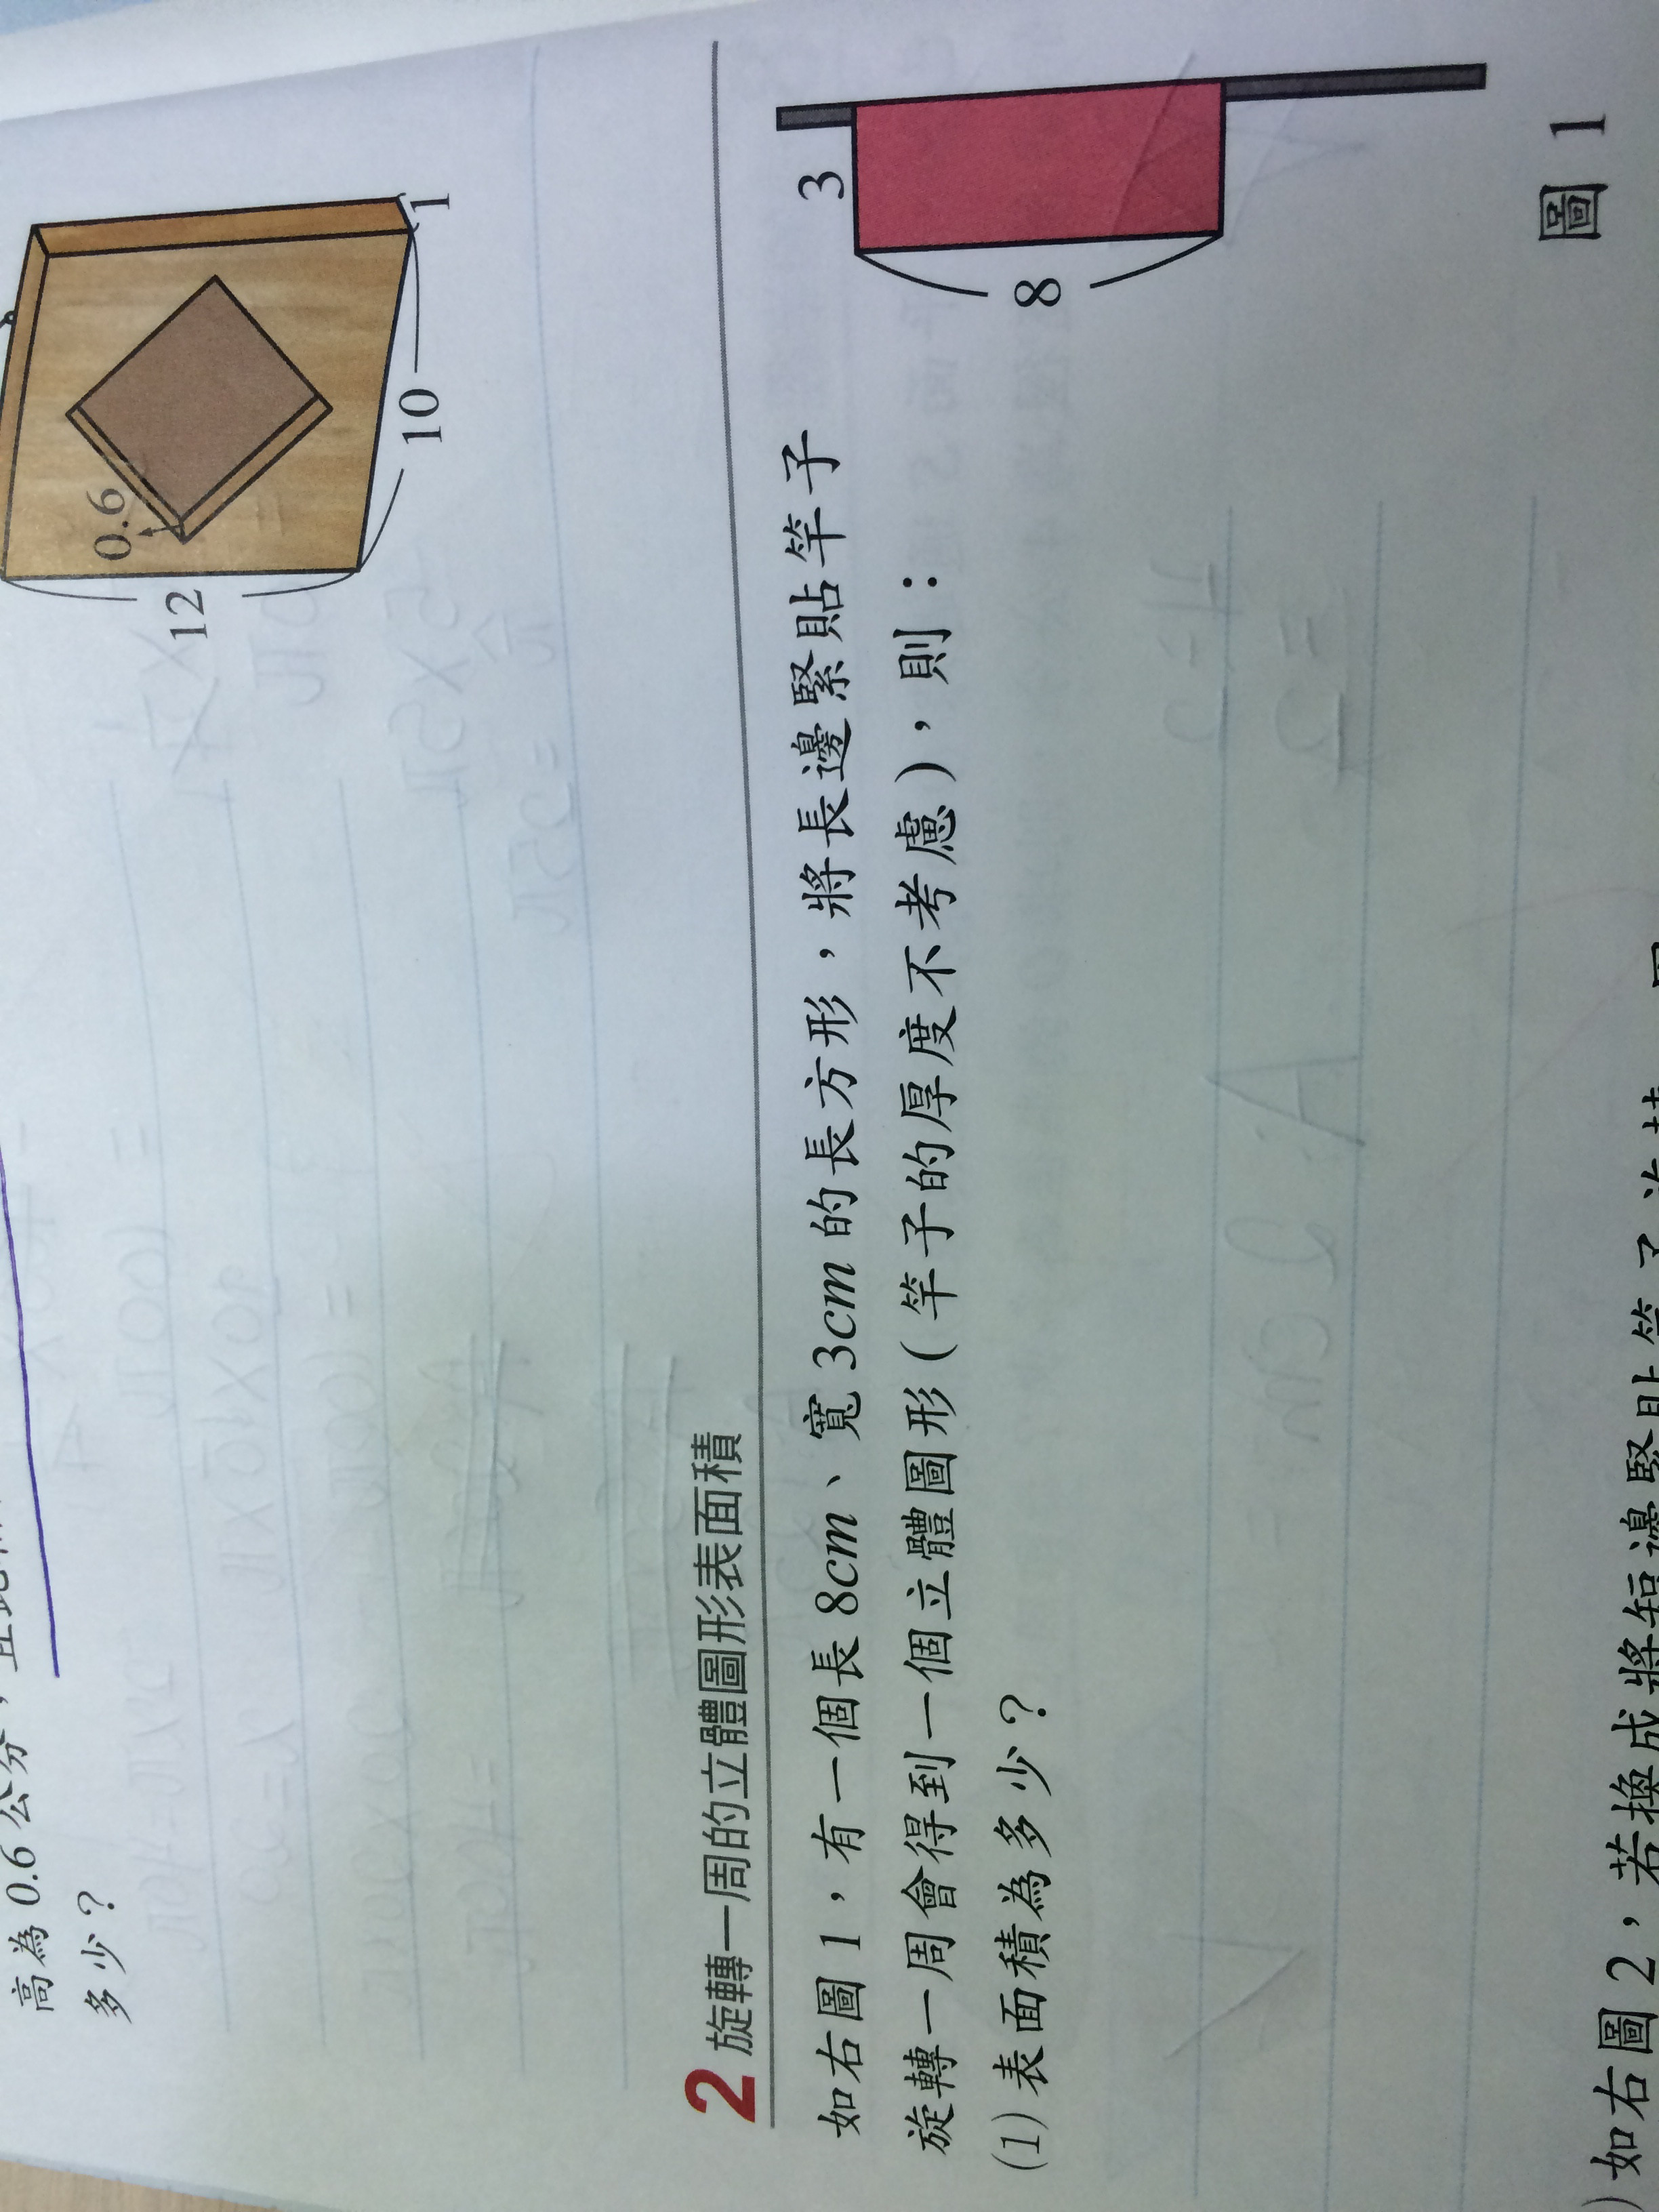 高為 0.6 公分，且此
多少？
0.6
12
10
1
2 旋轉一周的立體圖形表面積
如右圖 1，有一個長 8cm、寬 3cm 的長方形，將長邊緊貼竿子
旋轉一周會得到一個立體圖形（竿子的厚度不考慮），則：
(1) 表面積為多少？
3
8
圖 1
) 如右圖 2，若換成將短邊緊貼竿子